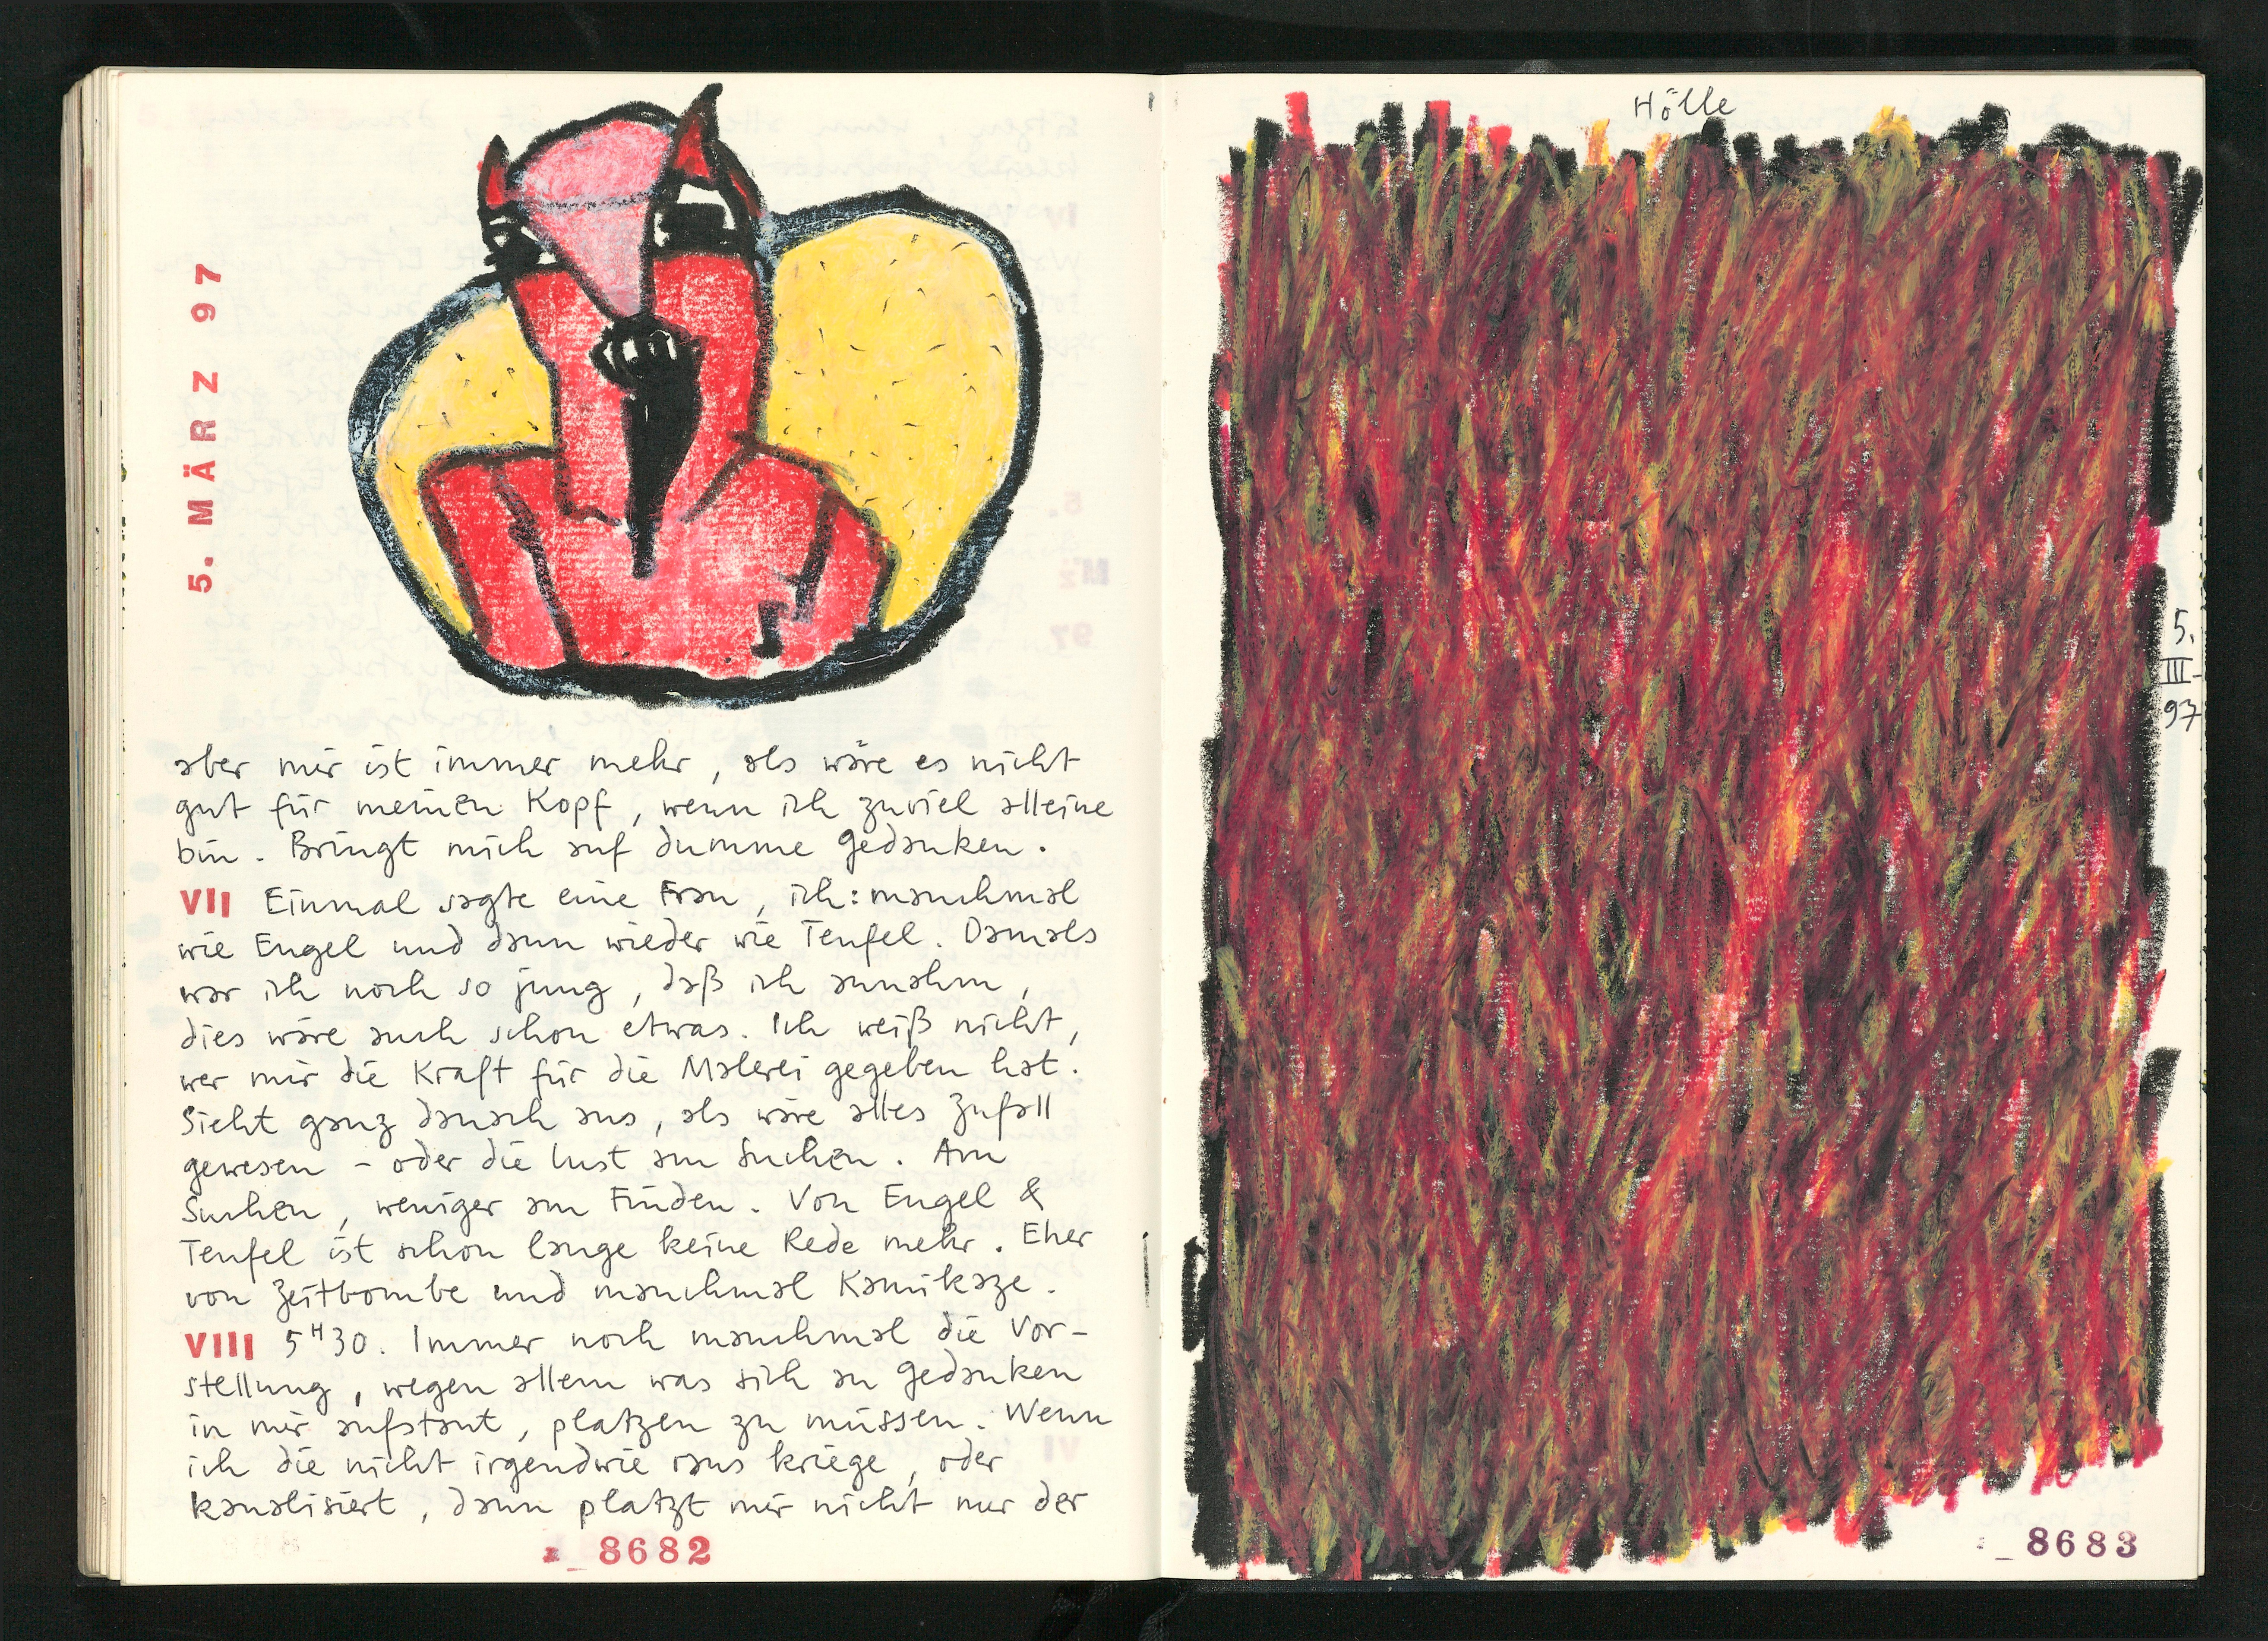 5. MÄRZ 97
aber mir ist immer mehr, als wäre es nicht
gut für meinen Kopf, wenn ich zuviel alleine
bin. Bringt mich auf dumme Gedanken.
VII Einmal sagte eine Frau, ich: manchmal
wie Engel und dann wieder wie Teufel. Damals
war ich noch so jung, daß ich annahm,
dies wäre auch schon etwas. Ich weiß nicht,
wer mir die Kraft für die Malerei gegeben hat.
Sieht ganz danach aus, als wäre alles Zufall
gewesen - oder die Lust am Suchen. Am
Suchen, weniger am Finden. Von Engel &
Teufel ist schon lange keine Rede mehr. Eher
von Zeitbombe und manchmal Kamikaze.
VIII 5H30. Immer noch manchmal die Vor-
stellung, wegen allem was sich an Gedanken
in mir aufstaut, platzen zu müssen. Wenn
ich die nicht irgendwie raus kriege, oder
kanalisiert, dann platzt mir nicht nur der
_8682
Hölle
5.
III-
97
_8683